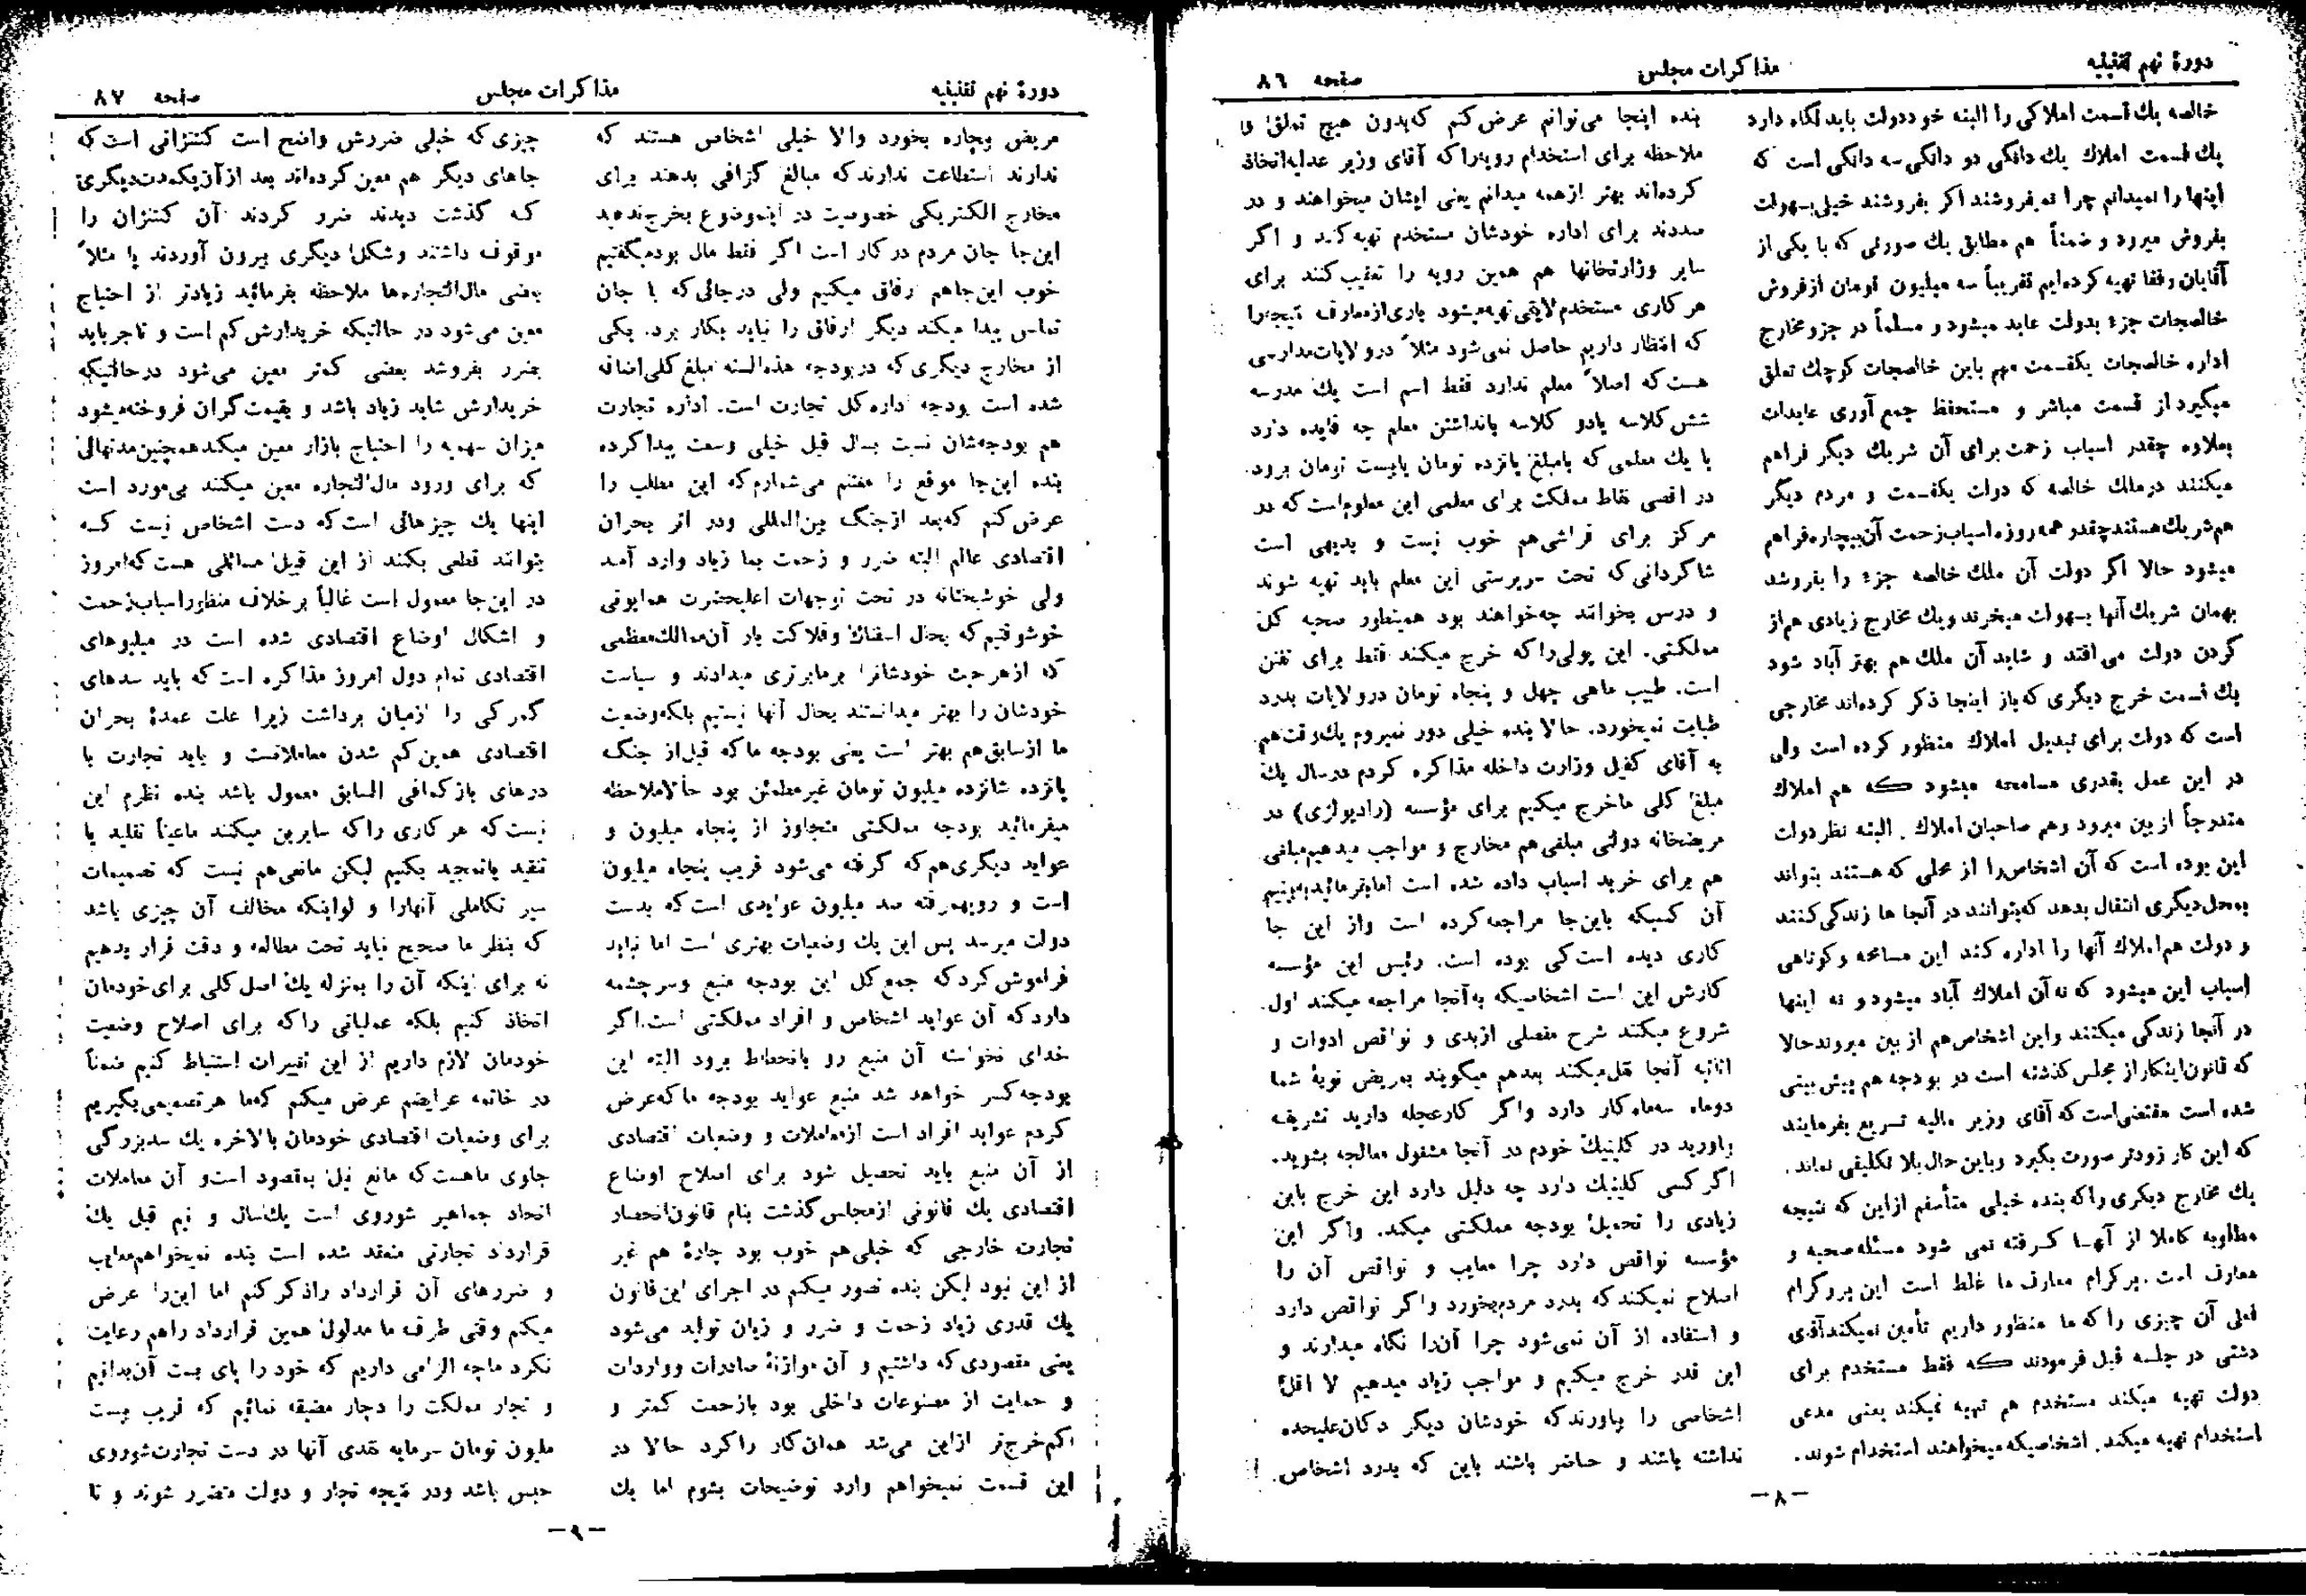 دورهٔ نهم تقنینیه
مذاکرات مجلس
صفحه ۸۶
خالصه یك قسمت املاکی را البته خود دولت باید نگاه دارد
یك قسمت املاك یك دانگی دو دانگی سه دانگی است که
اینها را نمیدانم چرا نمیفروشند اگر بفروشند خیلی بسهولت
بفروش میرود و ضمناً هم مطابق یك صورتی که با یکی از
آقایان رفقا تهیه کرده‌ایم تقریباً سه میلیون تومان از فروش
خالصجات جزء بدولت عاید میشود و مسلماً در جزو مخارج
اداره خالصجات یکقسمت مهم باین خالصجات کوچك تعلق
میگیرد از قسمت مباشر و مستحفظ جمع آوری عایدات
بعلاوه چقدر اسباب زحمت برای آن شریك دیگر فراهم
میکنند در ملك خالصه که دولت یکقسمت و مردم دیگر
هم شریك هستند چقدر همه روزه اسباب زحمت آن بیچاره فراهم
میشود حالا اگر دولت آن ملك خالصه جزء را بفروشد
بهمان شریك آنها بسهولت میخرند و یك مخارج زیادی هم از
گردن دولت می افتد و شاید آن ملك هم بهتر آباد شود
یك قسمت خرج دیگری که باز اینجا ذکر کرده‌اند مخارجی
است که دولت برای تبدیل املاك منظور کرده است ولی
در این عمل بقدری مسامحه میشود که هم املاك
متدرجاً از بین میرود و هم صاحبان املاك . البته نظر دولت
این بوده است که آن اشخاص را از محلی که هستند بتواند
بمحل دیگری انتقال بدهد که بتوانند در آنجا ها زندگی کنند
و دولت هم املاك آنها را اداره کند این مسامحه و کوتاهی
اسباب این میشود که نه آن املاك آباد میشود و نه اینها
در آنجا زندگی میکنند و این اشخاص هم از بین میروند حالا
که قانون اینکار از مجلس گذشته است در بودجه هم پیش بینی
شده است مقتضی است که آقای وزیر مالیه تسریع بفرمایند
که این کار زودتر صورت بگیرد و باین حال بلا تکلیفی نماند.
یك مخارج دیگری را که بنده خیلی متأسفم از این که نتیجه
مطلوبه کاملا از آنها گرفته نمی شود مسئله صحیه و
معارف است. پرگرام معارف ما غلط است این پروگرام
فعلی آن چیزی را که ما منظور داریم تأمین نمیکند آقای
دشتی در جلسه قبل فرمودند که فقط مستخدم برای
دولت تهیه میکند مستخدم هم تهیه نمیکند یعنی مدعی
استخدام تهیه میکند. اشخاصیکه میخواهند استخدام شوند.
بنده اینجا می‌توانم عرض کنم که بدون هیچ تملق
ملاحظه برای استخدام رویه‌را که آقای وزیر عدلیه اتخاذ
کرده‌اند بهتر از همه میدانم یعنی ایشان میخواهند و در
صددند برای اداره خودشان مستخدم تهیه کنند و اگر
سایر وزارتخانها هم همین رویه را تعقیب کنند برای
هر کاری مستخدم لایقی تهیه میشود باری از معارف نتیجه‌را
که انتظار داریم حاصل نمی‌شود مثلاً در ولایات مدارسی
هست که اصلاً معلم ندارد فقط اسم است یك مدرسه
شش کلاسه یا دو کلاسه با نداشتن معلم چه فایده دارد
یا یك معلمی که با مبلغ پانزده تومان یا بیست تومان برود.
در اقصی نقاط مملکت برای معلمی این معلوم است که در
مرکز برای فراشی هم خوب نیست و بدیهی است
شاگردانی که تحت سرپرستی این معلم باید تهیه شوند
و درس بخوانند چه خواهند بود همینطور صحیه کل
مملکتی. این پولی را که خرج میکنند فقط برای تفنن
است. طبیب ماهی چهل و پنجاه تومان در ولایات بدرد
طبابت نمیخورد. حالا بنده خیلی دور نمیروم یك وقت هم
به آقای کفیل وزارت داخله مذاکره کردم در سال یك
مبلغ کلی ما خرج میکنیم برای مؤسسه (رادیولژی) در
مریضخانه دولتی مبلغی هم مخارج و مواجب میدهیم مبلغی
هم برای خرید اسباب داده شده است اما بفرمائید ببینیم
آن کسیکه باین‌جا مراجعه کرده است و از این جا
کاری دیده است کی بوده است. رئیس این مؤسسه
کارش این است اشخاصیکه به آنجا مراجعه میکنند اول.
شروع میکنند شرح مفصلی از بدی و نواقص ادوات و
اثاثیه آنجا نقل میکند بعد هم میگویند بمریض نوبهٔ شما
دو ماه سه ماه کار دارد و اگر کار عجله دارید تشریف
بیاورید در کلینیك خودم در آنجا مشغول معالجه بشوید.
اگر کسی کلینیك دارد چه دلیل دارد این خرج باین
زیادی را تحمیل بودجه مملکتی میکند. و اگر این
مؤسسه نواقص دارد چرا معایب و نواقص آن را
اصلاح نمیکنند که بدرد مردم بخورد و اگر نواقص دارد
و استفاده از آن نمی‌شود چرا آن‌را نگاه میدارند و
این قدر خرج میکنیم و مواجب زیاد میدهیم لا اقل
اشخاصی را بیاورند که خودشان دیگر دکان علیحده
نداشته باشند و حاضر باشند باین که بدرد اشخاص.
-۸-
دورهٔ نهم تقنینیه
مذاکرات مجلس
صفحه ۸۷
مریض بیچاره بخورد والا خیلی اشخاص هستند که
ندارند استطاعت ندارند که مبالغ گزافی بدهند برای
مخارج الکتریکی خصوصیت در اینموضوع بخرج ندهید
این‌جا جان مردم در کار است اگر فقط مال بود میگفتیم
خوب این‌جا هم ارفاق میکنیم ولی در جائی که با جان
تماس پیدا میکند دیگر ارفاق را نباید بکار برد. یکی
از مخارج دیگری که در بودجه هذه‌السنه مبلغ کلی اضافه
شده است بودجه اداره کل تجارت است. اداره تجارت
هم بودجه‌شان نسبت بسال قبل خیلی وسعت پیدا کرده
بنده این‌جا موقع را مغتنم می‌شمارم که این مطلب را
عرض کنم که بعد از جنگ بین‌المللی و در اثر بحران
اقتصادی عالم البته ضرر و زحمت بما زیاد وارد آمد
ولی خوشبختانه در تحت توجهات اعلیحضرت همایونی
خوشوقتیم که بحال اسفناك و فلاکت بار آن ممالك معظمی
که از هر حیث خودشانرا بر ما برتری میدادند و سیاست
خودشان را بهتر میدانستند بحال آنها نیستیم بلکه وضعیت
ما از سابق هم بهتر است یعنی بودجه ما که قبل از جنگ
پانزده شانزده میلیون تومان غیر مطمئن بود حالا ملاحظه
میفرمائید بودجه مملکتی متجاوز از پنجاه میلیون و
عواید دیگری هم که گرفته می‌شود قریب پنجاه میلیون
است و رویهمرفته صد میلیون عوایدی است که بدست
دولت میرسد پس این یك وضعیات بهتری است اما نباید
فراموش کرد که جمع کل این بودجه منبع و سرچشمه
دارد که آن عواید اشخاص و افراد مملکتی است. اگر
خدای نخواسته آن منبع رو بانحطاط برود البته این
بودجه کسر خواهد شد منبع عواید بودجه ما که عرض
کردم عواید افراد است از معاملات و وضعیات اقتصادی
از آن منبع باید تحصیل شود برای اصلاح اوضاع
اقتصادی یك قانونی از مجلس گذشت بنام قانون انحصار
تجارت خارجی که خیلی هم خوب بود چارهٔ هم غیر
از این نبود لیکن بنده تصور میکنم در اجرای این قانون
یك قدری زیاد زحمت و ضرر و زیان تولید می‌شود
یعنی مقصودی که داشتیم و آن موازنهٔ صادرات و واردات
و حمایت از مصنوعات داخلی بود با زحمت کمتر و
کم خرج‌تر از این می‌شد همان کار را کرد حالا در
این قسمت نمیخواهم وارد توضیحات بشوم اما یك
چیزی که خیلی ضررش واضح است کنتنژانی است که
جاهای دیگر هم معین کرده‌اند بعد از آن یکمدت دیگری
که گذشت دیدند ضرر کردند آن کنتنژان را
موقوف داشتند و شکل دیگری بیرون آوردند یا مثلاً
بعضی مال‌التجاره‌ها ملاحظه بفرمائید زیادتر از احتیاج
معین می‌شود در حالتیکه خریدارش کم است و تاجر باید
بضرر بفروشد بعضی کمتر معین می‌شود در حالتیکه
خریدارش شاید زیاد باشد و بقیمت گران فروخته میشود
میزان سهمیه را احتیاج بازار معین میکند همچنین مدتهائی
که برای ورود مال‌التجاره معین میکنند بی‌مورد است
اینها یك چیزهائی است که دست اشخاص نیست که
بتوانند قطعی بکنند از این قبیل مسائلی هست که امروز
در این‌جا معمول است غالباً بر خلاف منظور اسباب زحمت
و اشکال اوضاع اقتصادی شده است در میلیوهای
اقتصادی تمام دول امروز مذاکره است که باید سدهای
گمرکی را از میان برداشت زیرا علت عمدهٔ بحران
اقتصادی همین کم شدن معاملاتست و باید تجارت با
درهای باز کمافی السابق معمول باشد بنده نظرم این
نیست که هر کاری را که سایرین میکنند ما عیناً تقلید یا
تنقید یا تمجید بکنیم لیکن مانعی هم نیست که تصمیمات
سیر تکاملی آنهارا و لو اینکه مخالف آن چیزی باشد
که بنظر ما صحیح نیاید تحت مطالعه و دقت قرار بدهیم
نه برای اینکه آن را بمنزله یك اصل کلی برای خودمان
اتخاذ کنیم بلکه عملیاتی را که برای اصلاح وضعیت
خودمان لازم داریم از این تغییرات استنباط کنیم ضمناً
در خاتمه عرایضم عرض میکنم که ما هر تصمیمی بگیریم
برای وضعیات اقتصادی خودمان بالاخره یك سد بزرگی
جلوی ما هست که مانع نیل بمقصود است و آن معاملات
اتحاد جماهیر شوروی است یك‌سال و نیم قبل یك
قرارداد تجارتی منعقد شده است بنده نمیخواهم معایب
و ضررهای آن قرارداد را ذکر کنم اما این‌را عرض
میکنم وقتی طرف ما مدلول همین قرارداد را هم رعایت
نکرد ما چه الزامی داریم که خود را پای بست آن بدانیم
و تجار مملکت را دچار مضیقه نمائیم که قریب بیست
ملیون تومان سرمایه نقدی آنها در دست تجارت شوروی
حبس باشد و در نتیجه تجار و دولت متضرر شوند و تا
-۹-